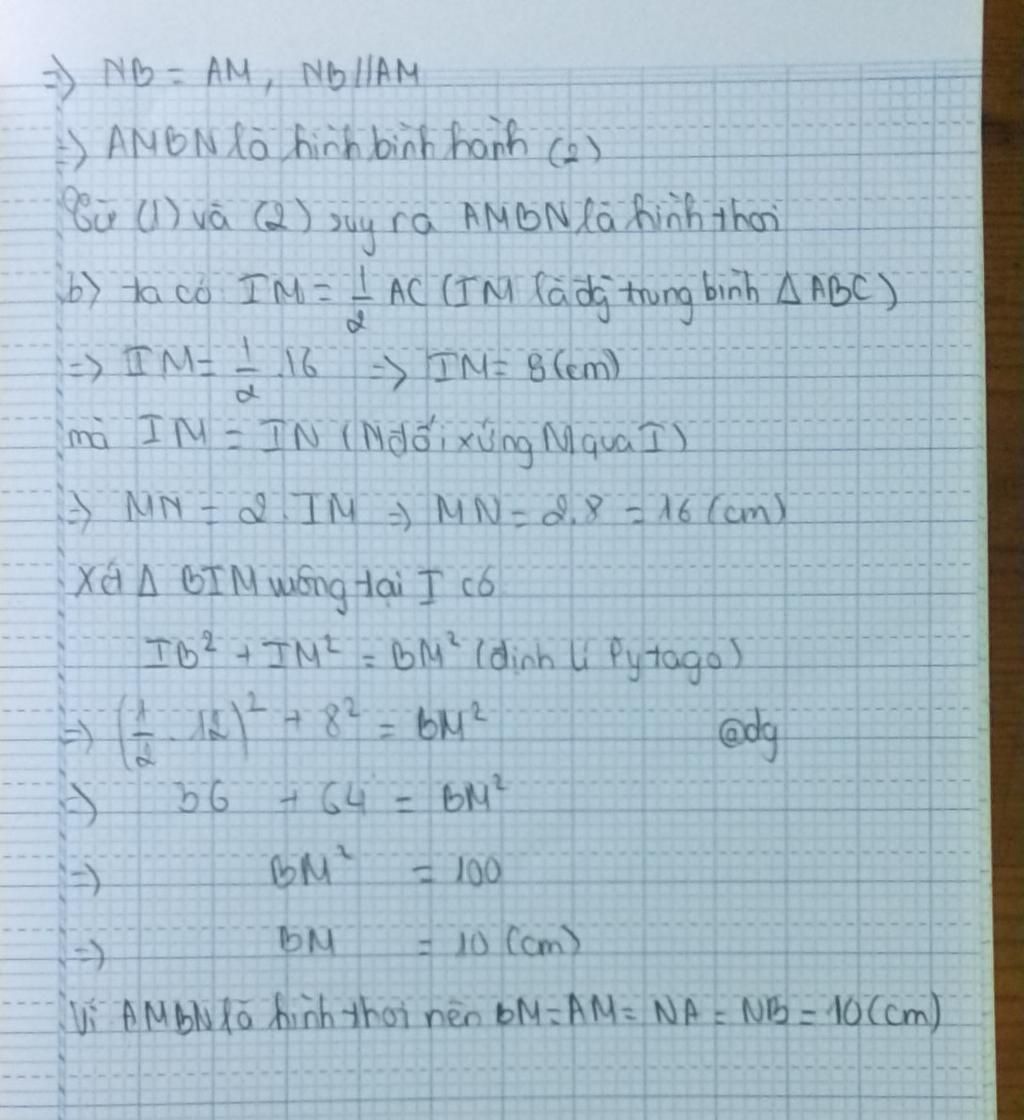 => NB = AM, NB//AM
=> AMBN là hình bình hành (2)
Từ (1) và (2) suy ra AMBN là hình thoi
b) ta có IM = 1/2 AC (IM là đg trung bình Δ ABC)
=> IM = 1/2 .16 => IM = 8 (cm)
mà IM = IN (N đối xứng M qua I)
=> MN = 2. IM => MN = 2.8 = 16 (cm)
Xét Δ BIM vuông tại I có
IB² + IM² = BM² (định lí Pytago)
=> (1/2 . 12)² + 8² = BM²
@dg
=> 36 + 64 = BM²
=> BM² = 100
=> BM = 10 (cm)
Vì AMBN là hình thoi nên BM = AM = NA = NB = 10 (cm)